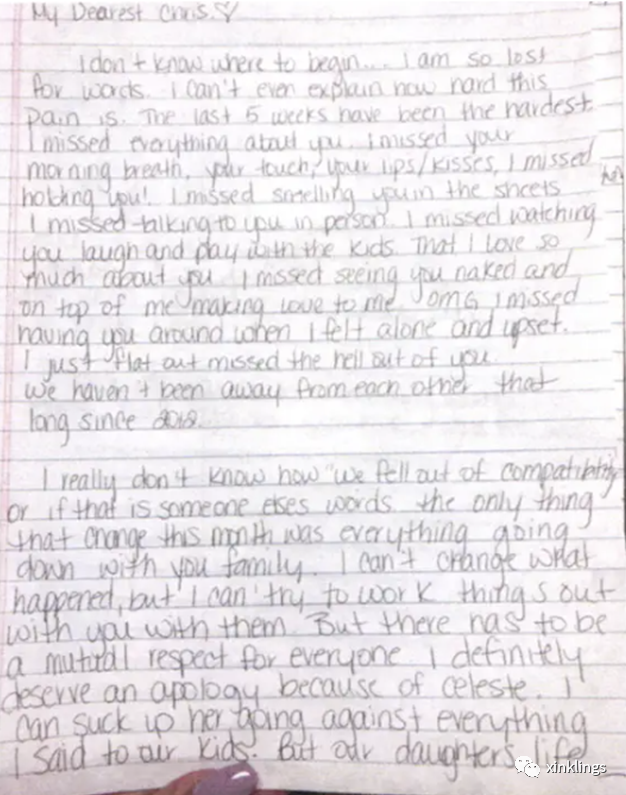 My Dearest Chris. ♡
I don't know where to begin... I am so lost
for words. I can't even explain how hard this
pain is. The last 5 weeks have been the hardest.
I missed everything about you. I missed your
morning breath, your touch, your lips/kisses, I missed
holding you! I missed smelling you in the sheets
I missed talking to you in person. I missed watching
you laugh and pay with the kids. That I love so
much about you. I missed seeing you naked and
on top of me making love to me. OMG I missed
having you around when I felt alone and upset.
I just flat out missed the hell out of you.
We haven't been away from each other that
long since 2012.
I really don't know how "we fell out of compatibility
or if that is someone elses words. the only thing
that change this month was everything going
down with you family. I can't change what
happened, but I can try to work things out
with you with them. But there has to be
a mutual respect for everyone. I definitely
deserve an apology because of celeste. I
can suck up her going against everything
I said to our kids. But our daughters life
xinklings